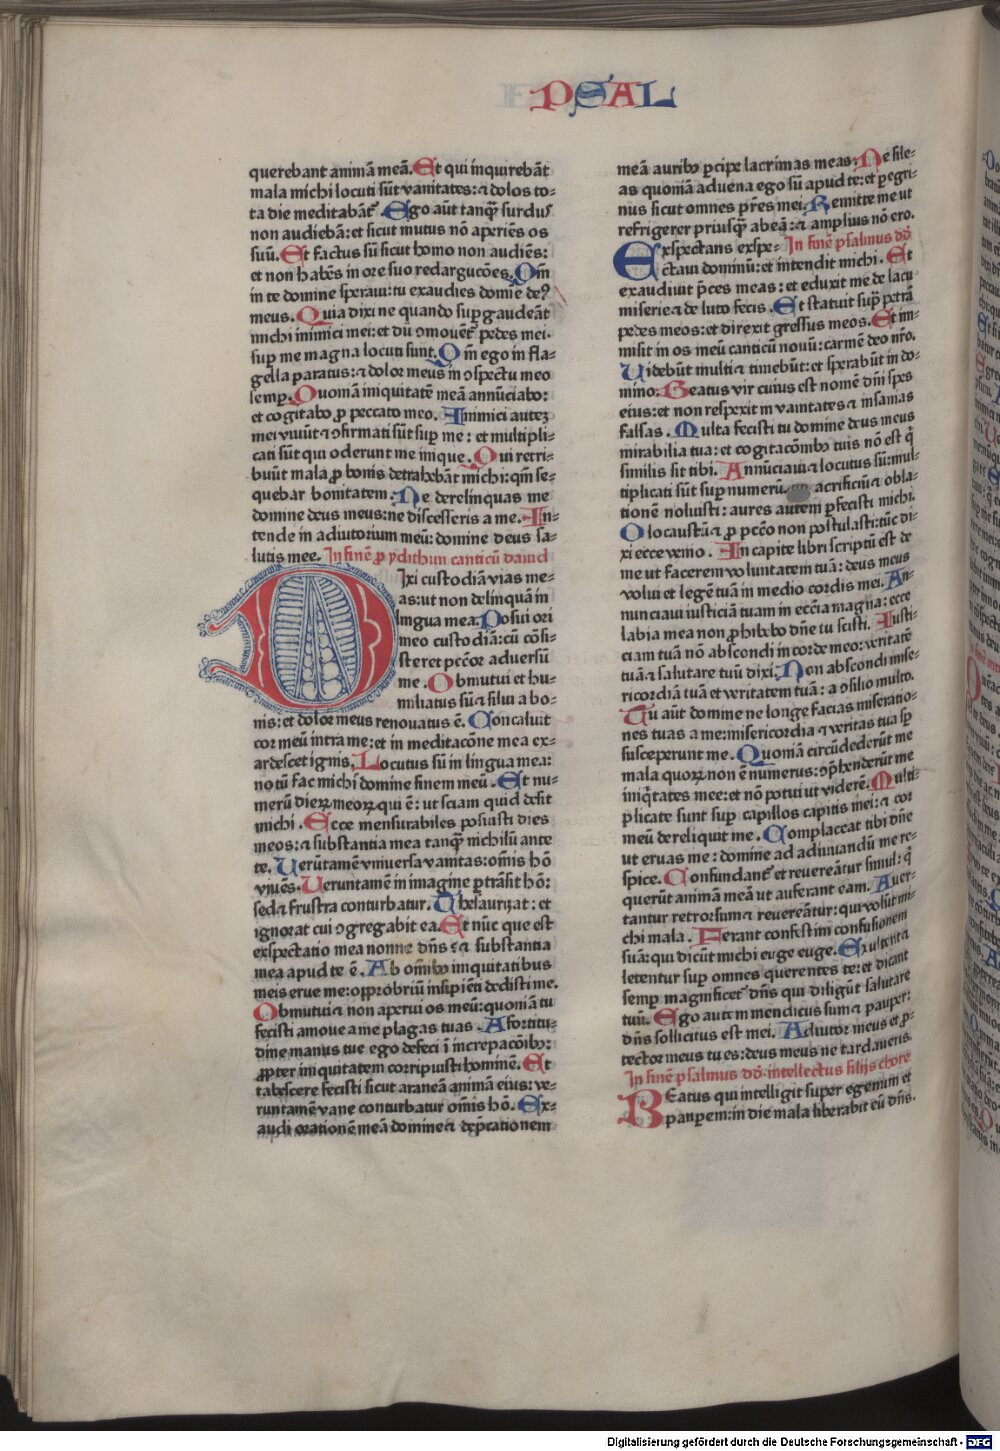 PSAL
querebant animā meā. Et qui inquirebāt
mala michi locuti sūt vanitates: ⁊ dolos to-
ta die meditabāt. Ego aūt tanqȝ surdus
non audiebā: et sicut mutus nō aperiēs os
suū. Et factus sū sicut homo non audiēs:
et non habēs in ore suo redargucōes. Qm̄
in te domine speraui: tu exaudies domīe deꝰ
meus. Quia dixi ne quando supgaudeāt
michi inimici mei: et dū ꝯmouēt̄ pedes mei.
sup me magna locuti sunt. Qm̄ ego in fla-
gella paratus: ⁊ dolor meus in ꝯspectu meo
semp. Quoniā iniquitatē meā annūciabo:
et cogitabo ꝓ peccato meo. Inimici autez
mei viuūt ⁊ ꝯfirmati sūt sup me: et multipli-
cati sūt qui oderunt me inique. Qui retri-
buūt mala ꝓ bonis detrahebāt michi: qm̄ se-
quebar bonitatem. Ne derelinquas me
domine deus meus: ne discesseris a me. In-
tende in adiutorium meū: domine deus sa-
lutis mee. In finē ꝓ ydithun canticū dauid
Dixi custodiā vias me-
as: ut non delinquā in
lingua mea. Posui ori
meo custodiā: cū cōsi-
steret pccōr aduersū
me. Obmutui et hu-
miliatus sū ⁊ silui a bo-
nis: et dolor meus renouatus ē. Concaluit
cor meū intra me: et in meditacōne mea ex-
ardescet ignis. Locutus sū in lingua mea:
notū fac michi domine finem meū. Et nu-
merū dieꝝ meoꝝ qui ē: ut sciam quid desit
michi. Ecce mensurabiles posuisti dies
meos: ⁊ substantia mea tanqȝ nichilū ante
te. Uerūtamē vniuersa vanitas: om̄is hō
viuēs. Ueruntamē in imagine ptrāsit hō:
sed ⁊ frustra conturbatur. Thesaurizat: et
ignorat cui ꝯgregabit ea. Et nūc que est
expectatio mea nonne dn̄s: ⁊ substantia
mea apud te ē. Ab om̄ibꝰ iniquitatibus
meis erue me: opprobriū insipiēti dedisti me.
Obmutui ⁊ non aperui os meū: quoniā tu
fecisti amoue a me plagas tuas. A fortitu-
dine manus tue ego defeci ī increpacōibꝰ:
ꝓpter iniquitatem corripuisti hominē. Et
tabescere fecisti sicut araneā animā eius: ve-
runtamē vane conturbatur om̄is hō. Ex-
audi orationē meā domine ⁊ dep̄cationem
meā auribꝰ pcipe lacrimas meas: Ne sile-
as quoniā aduena ego sū apud te: et pegri-
nus sicut omnes p̄res mei. Remitte me ut
refrigerer priusqȝ abeā: ⁊ amplius nō ero.
Exspectans exspe- In finē psalmus dd̄
ctaui dominū: et intendit michi. Et
exaudiuit p̄ces meas: et eduxit me de lacu
miserie ⁊ de luto fecis. Et statuit sup petrā
pedes meos: et direxit gressus meos. Et im-
misit in os meū canticū nouū: carmē deo nr̄o.
Uidebūt multi ⁊ timebūt: et sperabūt in do-
mino. Beatus vir cuius est nomē dn̄i spes
eius: et non respexit in vanitates ⁊ insanias
falsas. Multa fecisti tu domine deus meus
mirabilia tua: et cogitacōnibꝰ tuis nō est q̄
similis sit tibi. Annūciaui ⁊ locutus sū: mul-
tiplicati sūt sup numerū. acrificiū ⁊ obla-
tionē noluisti: aures autem pfecisti michi.
Olocaustū ⁊ ꝓ pccō non postulasti: tūc di-
xi ecce venio. In capite libri scriptū est de
me ut facerem voluntatem tuā: deus meus
volui et legē tuā in medio cordis mei. An-
nunciaui iusticiā tuam in ecc̄ia magna: ecce
labia mea non ꝓhibebo dn̄e tu scisti. Iusti-
ciam tuā nō abscondi in corde meo: veritatē
tuā ⁊ salutare tuū dixi. Non abscondi mise-
ricordiā tuā et veritatem tuā: a ꝯsilio multo.
Tu aūt domine ne longe facias miseratio-
nes tuas a me: misericordia ⁊ veritas tua sp̄
susceperunt me. Quoniā circūdederūt me
mala quoꝝ non ē numerus: ꝯp̄henderūt me
iniq̄tates mee: et nō potui ut viderē. Multi-
plicate sunt sup capillos capitis mei: ⁊ cor
meū dereliquit me. Complaceat tibi dn̄e
ut eruas me: domine ad adiuuandū me re-
spice. Confundant̄ et reuereātur simul: q̄
querūt animā meā ut auferant eam. Auer-
tantur retrorsum ⁊ reuereātur: qui volūt mi-
chi mala. Ferant confestim confusionem
suā: qui dicūt michi euge euge. Exultent ⁊
letentur sup omnes querentes te: et dicant
semp magnificet̄ dn̄s qui diligūt salutare
tuū. Ego autem mendicus sum ⁊ pauper:
dn̄s sollicitus est mei. Adiutor meus et ꝓ-
tector meus tu es: deus meus ne tardaueris.
In finē psalmus dd̄ intellectus filijs chore
Beatus qui intelligit super egenum et
paupem: in die mala liberabit eū dn̄s.
Digitalisierung gefördert durch die Deutsche Forschungsgemeinschaft - DFG